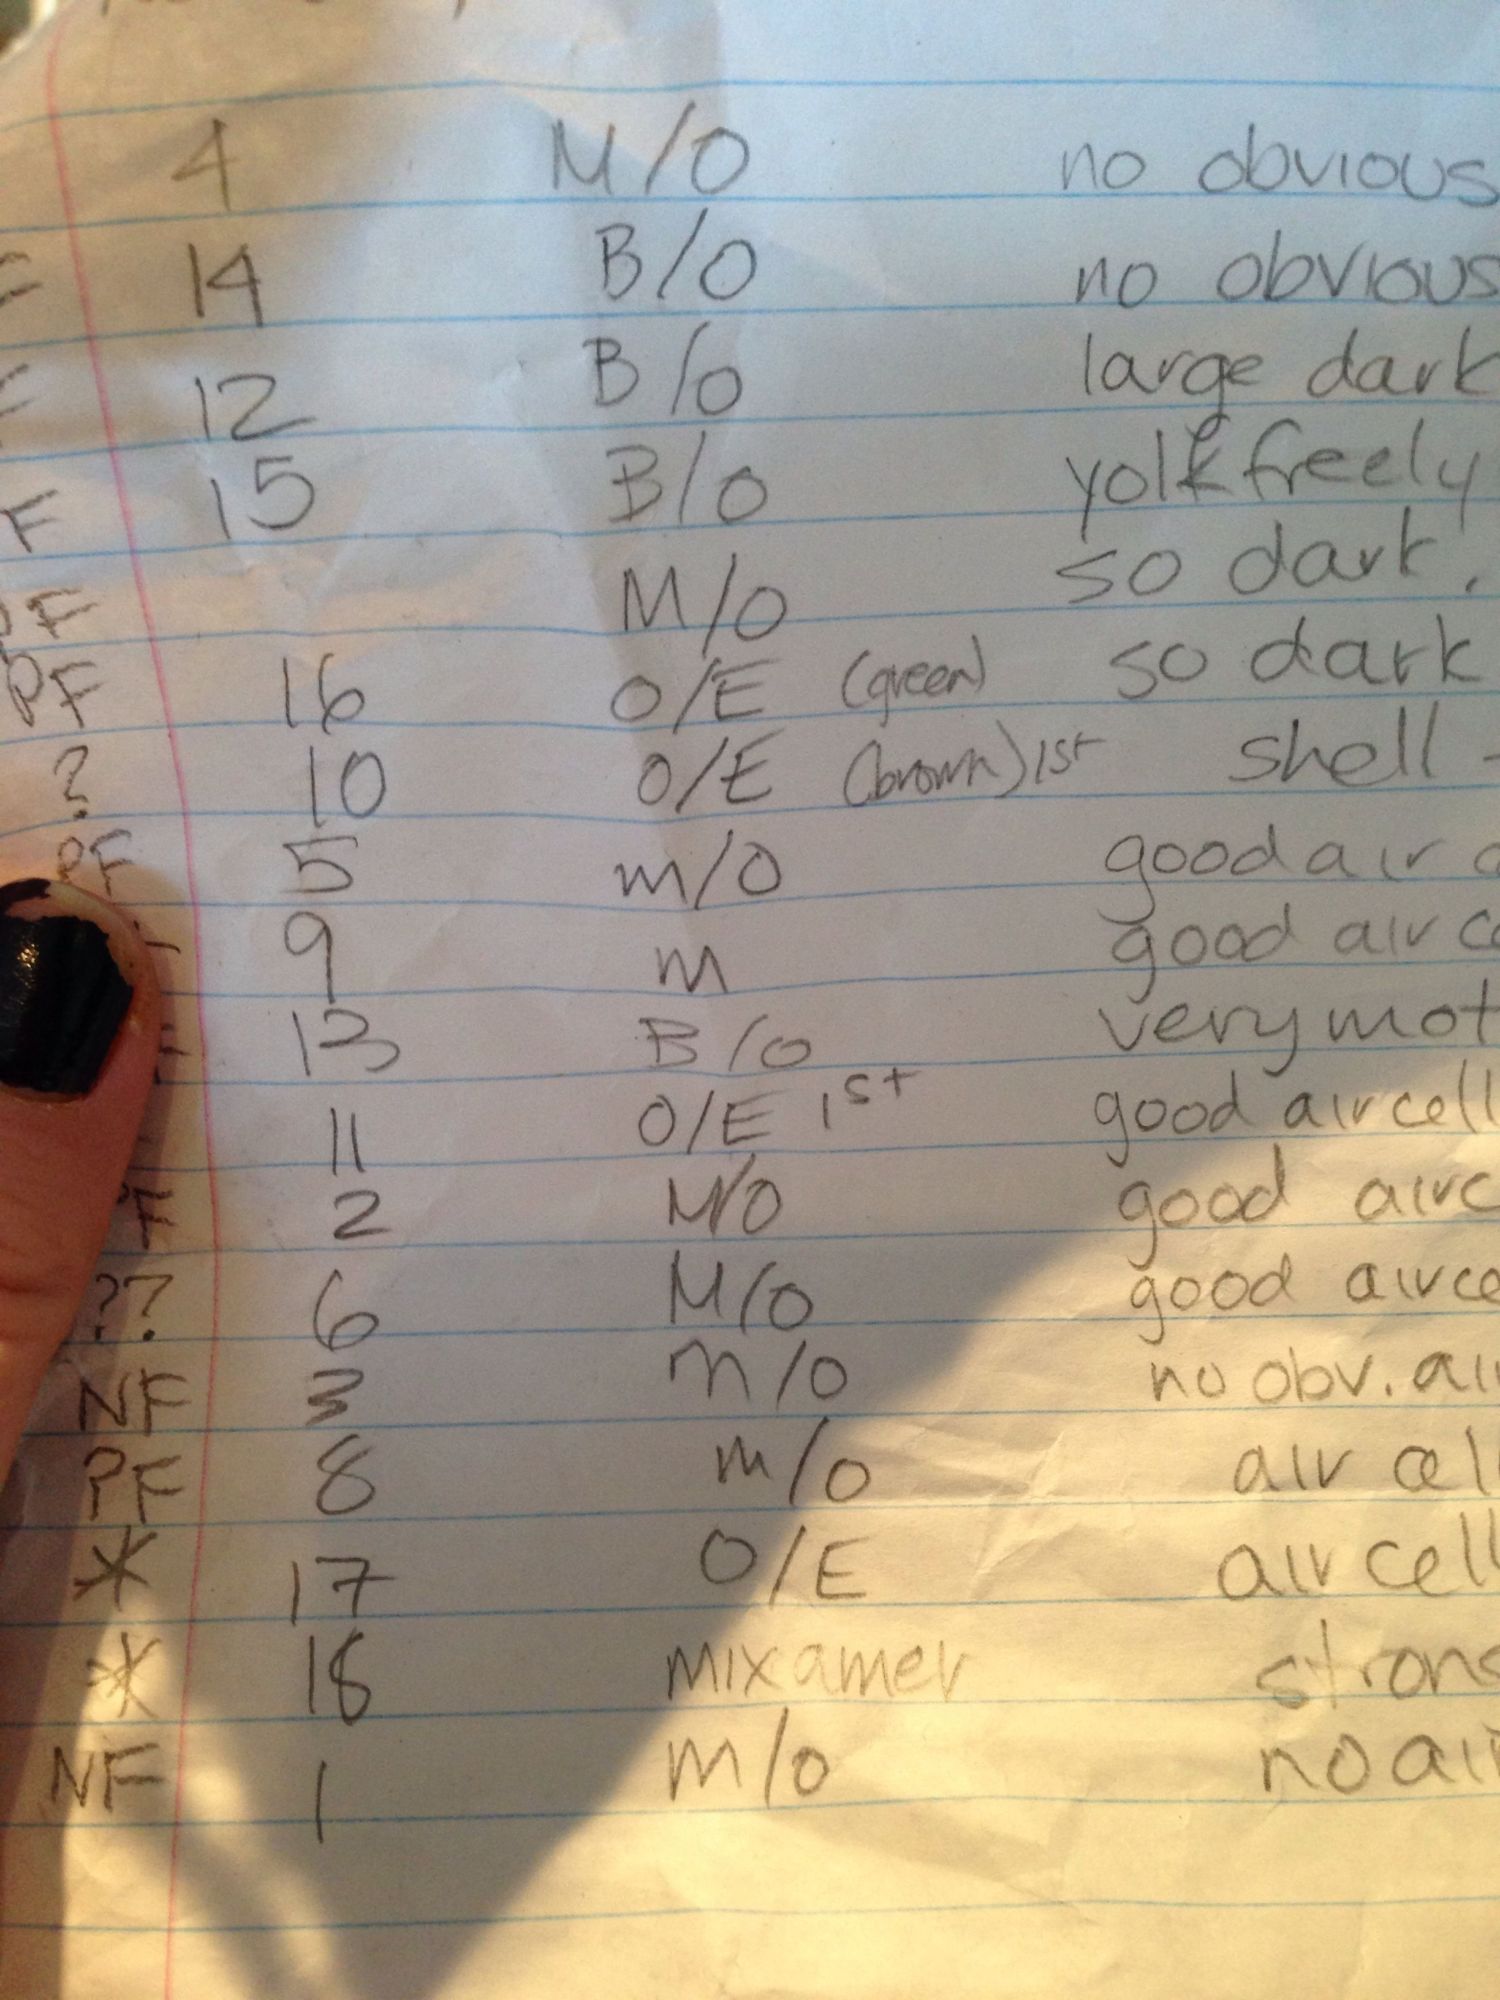 4 M/O no obvious
F 14 B/O no obvious
F 12 B/O large dark
F 15 B/O yolk freely
PF M/O so dark.
PF 16 O/E (green) so dark
? 10 O/E (brown) 1st shell -
PF 5 m/O good air c
9 m good air ce
13 B/O very mot
11 O/E 1st good aircell
PF 2 M/O good airc
?? 6 M/O good airce
NF 3 m/O no obv. ai
PF 8 m/O air cel
* 17 O/E air cell
* 18 mixamer strons
NF 1 m/o no ai